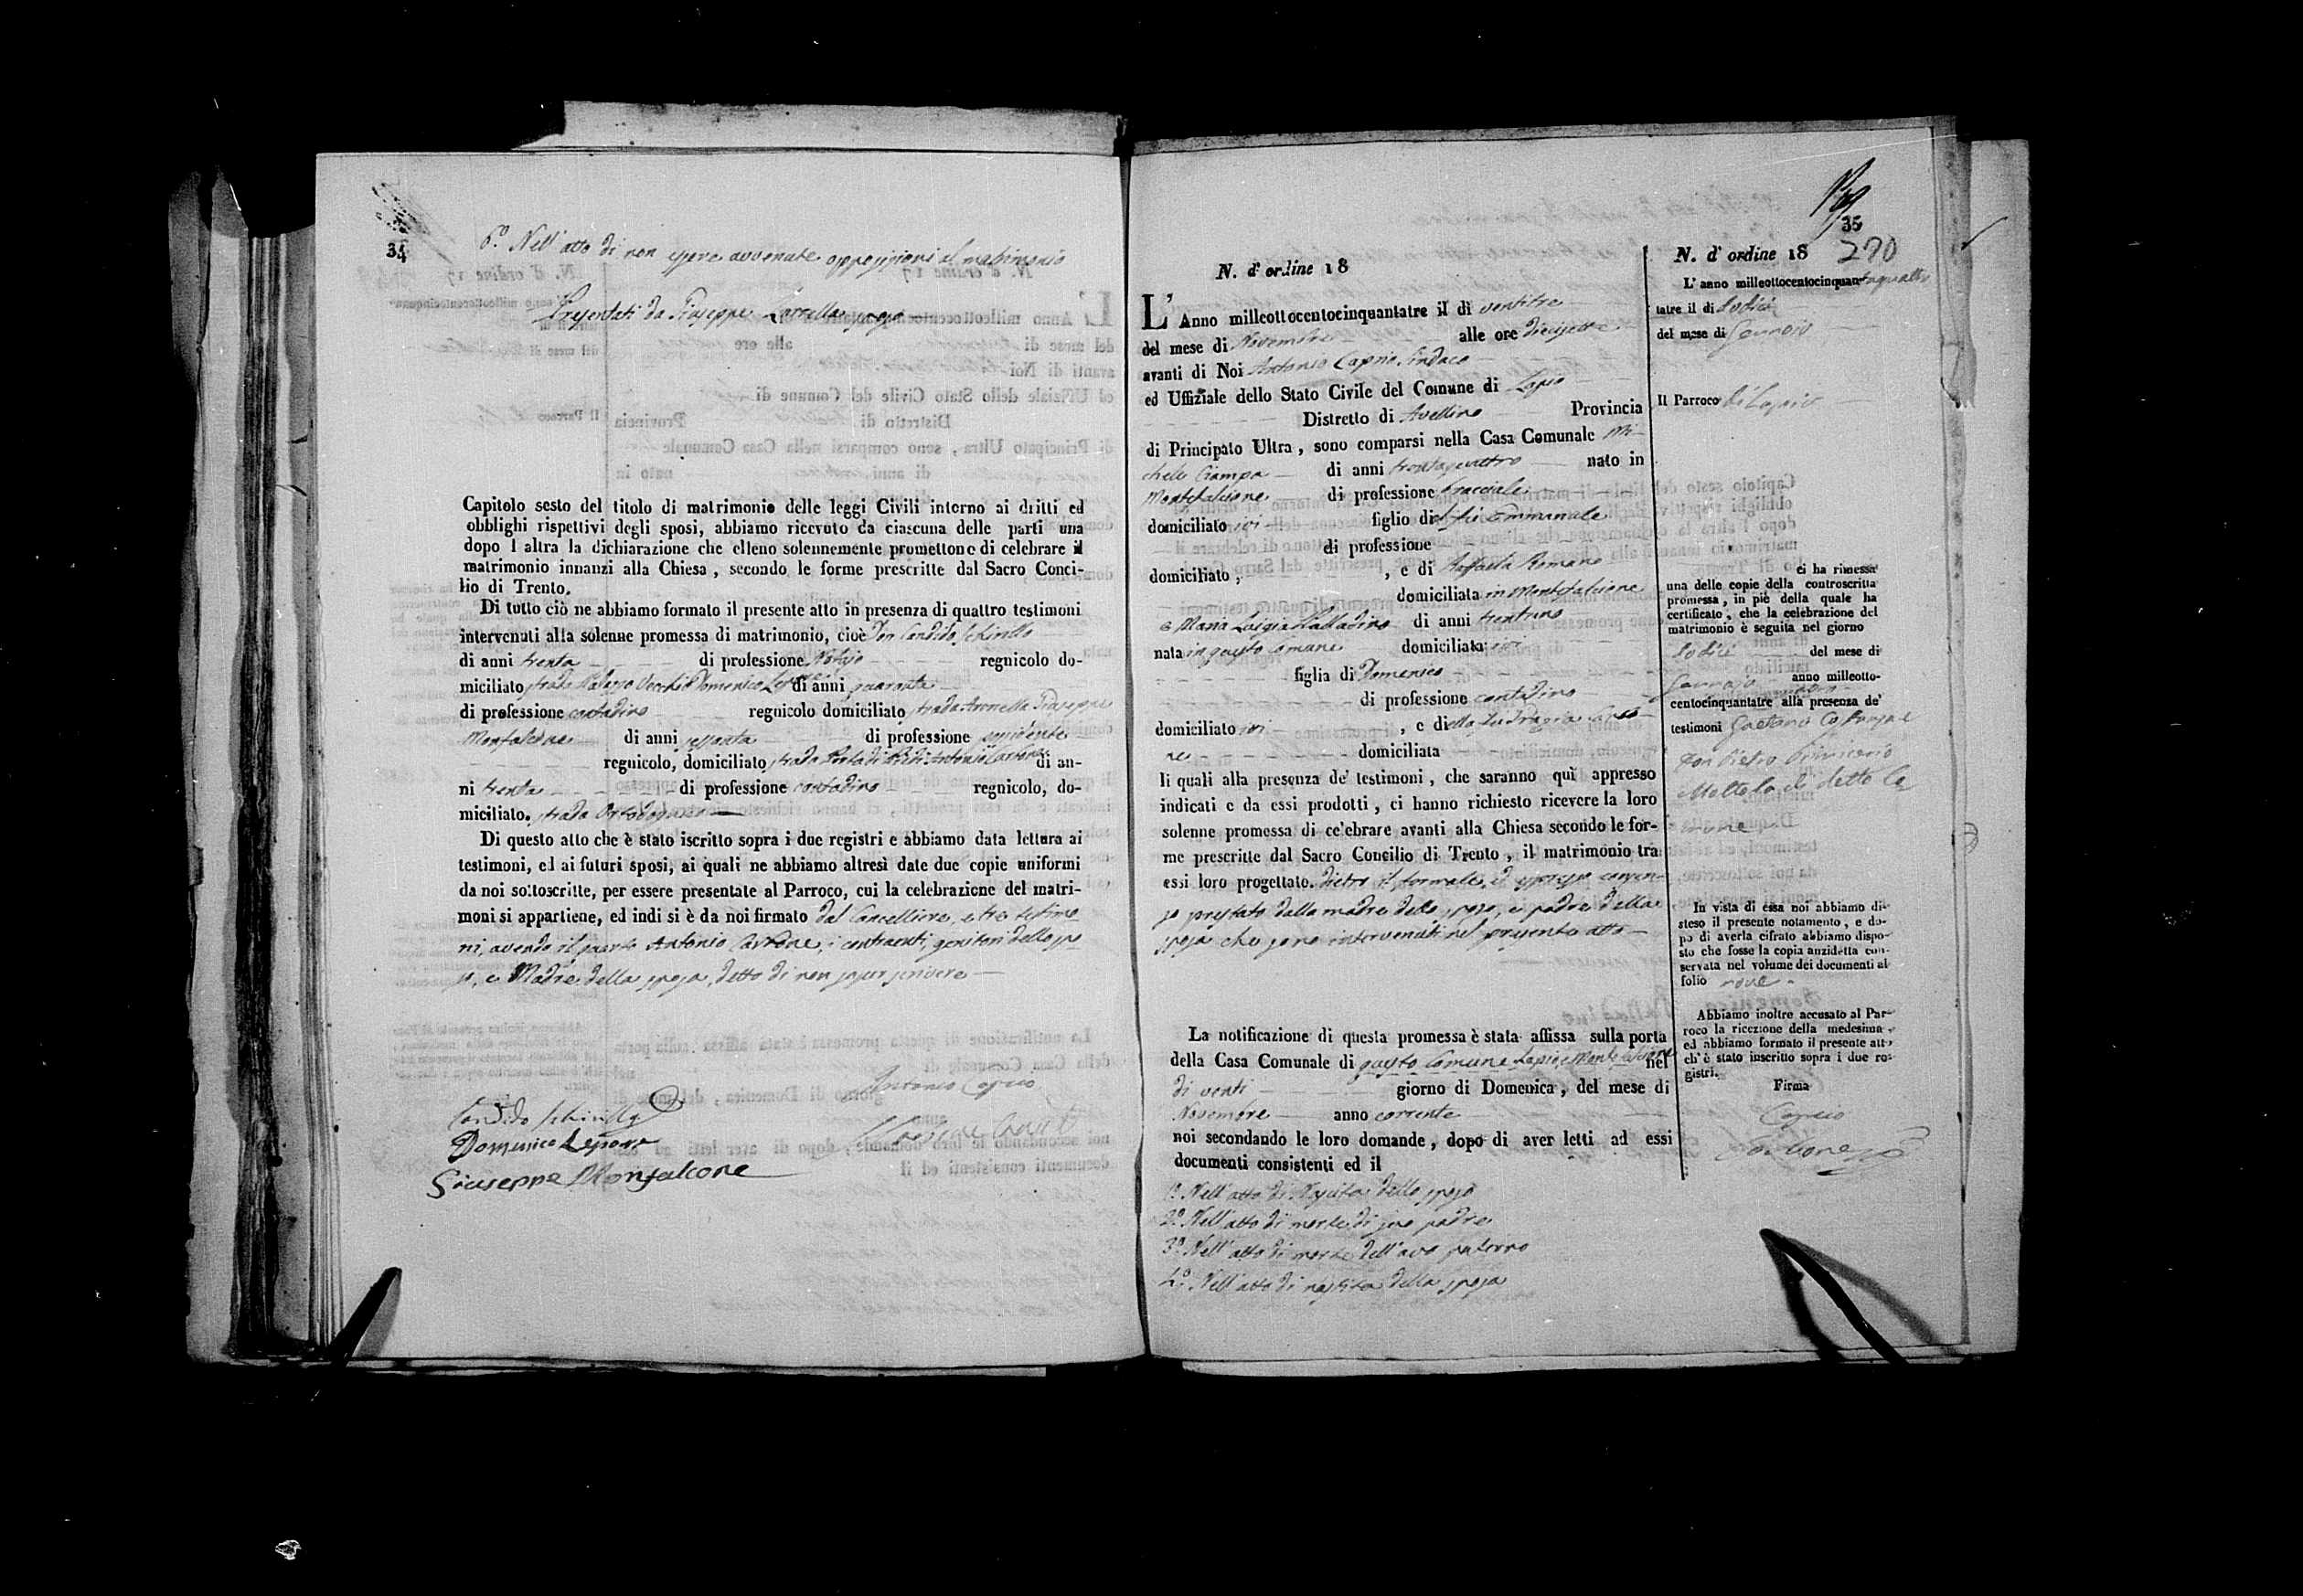 34
6.° Nell' atto di non essere avvenute opposizioni al matrimonio
Presentati da Giuseppe sposo
Capitolo sesto del titolo di matrimonio delle leggi Civili intorno ai dritti ed
obblighi rispettivi degli sposi, abbiamo ricevuto da ciascuna delle parti una
dopo l altra la dichiarazione che elleno solennemente promettono di celebrare il
matrimonio innanzi alla Chiesa, secondo le forme prescritte dal Sacro Conci-
lio di Trento.
Di tutto ciò ne abbiamo formato il presente atto in presenza di quattro testimoni
intervenuti alla solenne promessa di matrimonio, cioè Don Candido Schirillo
di anni trenta di professione Notajo regnicolo do-
miciliato strada Palazzo Vecchio Domenico di anni quaranta
di professione contadino regnicolo domiciliato strada Giuseppe
Monfalcone di anni sessanta di professione
regnicolo, domiciliato strada Porta di Antonio Carbone di an-
ni trenta di professione contadino regnicolo, do-
miciliato strada
Di questo atto che è stato iscritto sopra i due registri e abbiamo data lettura ai
testimoni, ed ai futuri sposi, ai quali ne abbiamo altresì date due copie uniformi
da noi sottoscritte, per essere presentate al Parroco, cui la celebrazione del matri-
moni si appartiene, ed indi si è da noi firmato dal Cancelliere, e tre testimo
ni, avendo il quarto Antonio Carbone, i contraenti, genitori dello spo
so, e Madre della sposa, detto di non saper scrivere
Antonio Caprio
Candido Schirillo
Domenico
Giuseppe Monfalcone
35
N. d' ordine 18
L' Anno milleottocentocinquantatre il dì ventitre
del mese di Novembre alle ore diecisette
avanti di Noi Antonio Caprio Sindaco
ed Uffiziale dello Stato Civile del Comune di Lapio
Distretto di Avellino Provincia
di Principato Ultra, sono comparsi nella Casa Comunale Mi-
chele Ciampa di anni trentaquattro nato in
Montefalcione di professione bracciale
domiciliato ivi figlio del fu Emmanuele
di professione
domiciliato, , e di Raffaela Romano
domiciliata in Montefalcione
e Maria Luigia Palladino di anni trentuno
nata in questo Comune domiciliata ivi
figlia di Domenico
di professione contadino
domiciliato ivi , e di
ne domiciliata
li quali alla presenza de' testimoni, che saranno quì appresso
indicati e da essi prodotti, ci hanno richiesto ricevere la loro
solenne promessa di ce'ebrare avanti alla Chiesa secondo le for-
me prescritte dal Sacro Concilio di Trento, il matrimonio tra
essi loro progettato. Dietro il formale, ed espresso consen-
so prestato dalla madre dello sposo, e padre della
sposa che sono intervenuti nel presente atto
La notificazione di questa promessa è stata affissa sulla porta
della Casa Comunale di questo Comune Lapio, e Montefalcione nel
dì venti giorno di Domenica, del mese di
Novembre anno corrente
noi secondando le loro domande, dopo di aver letti ad essi
documenti consistenti ed il
1.° Nell' atto di Nascita dello sposo
2.° Nell' atto di morte di suo padre
3.° Nell' atto di morte dell' avo paterno
4.° Nell' atto di nascita della sposa
N. d' ordine 18
270
L' anno milleottocentocinquantaquattro
tatre il di dodici
del mese di Gennaio
Il Parroco di Lapio
ci ha rimessa
una delle copie della controscritta
promessa, in piè della quale ha
certificato, che la celebrazione del
matrimonio è seguita nel giorno
dodici del mese di
Gennajo anno milleotto-
centocinquantatre alla presenza de'
testimoni Gaetano
Don Pietro
di detto Co
mune
In vista di essa noi abbiamo di-
steso il presente notamento, e do-
po di averla cifrato abbiamo dispo-
sto che fosse la copia anzidetta con-
servata nel volume dei documenti al
folio nove
Abbiamo inoltre accusato al Par-
roco la ricezione della medesima,
ed abbiamo formato il presente atto
ch' è stato inscritto sopra i due re-
gistri.
Firma
Caprio
Carbone